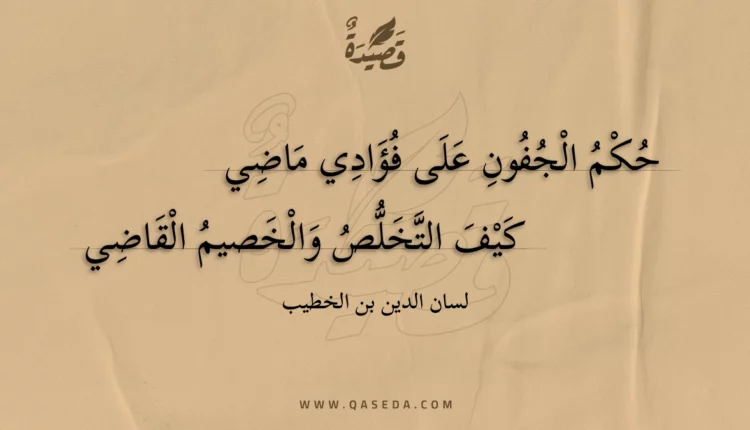 قَصِيْدَةٌ
حُكْمُ الْجُفُونِ عَلَى فُؤَادِي مَاضِي
كَيْفَ التَّخَلُّصُ وَالْخَصيمُ الْقَاضِي
لسان الدين بن الخطيب
WWW.QASEDA.COM